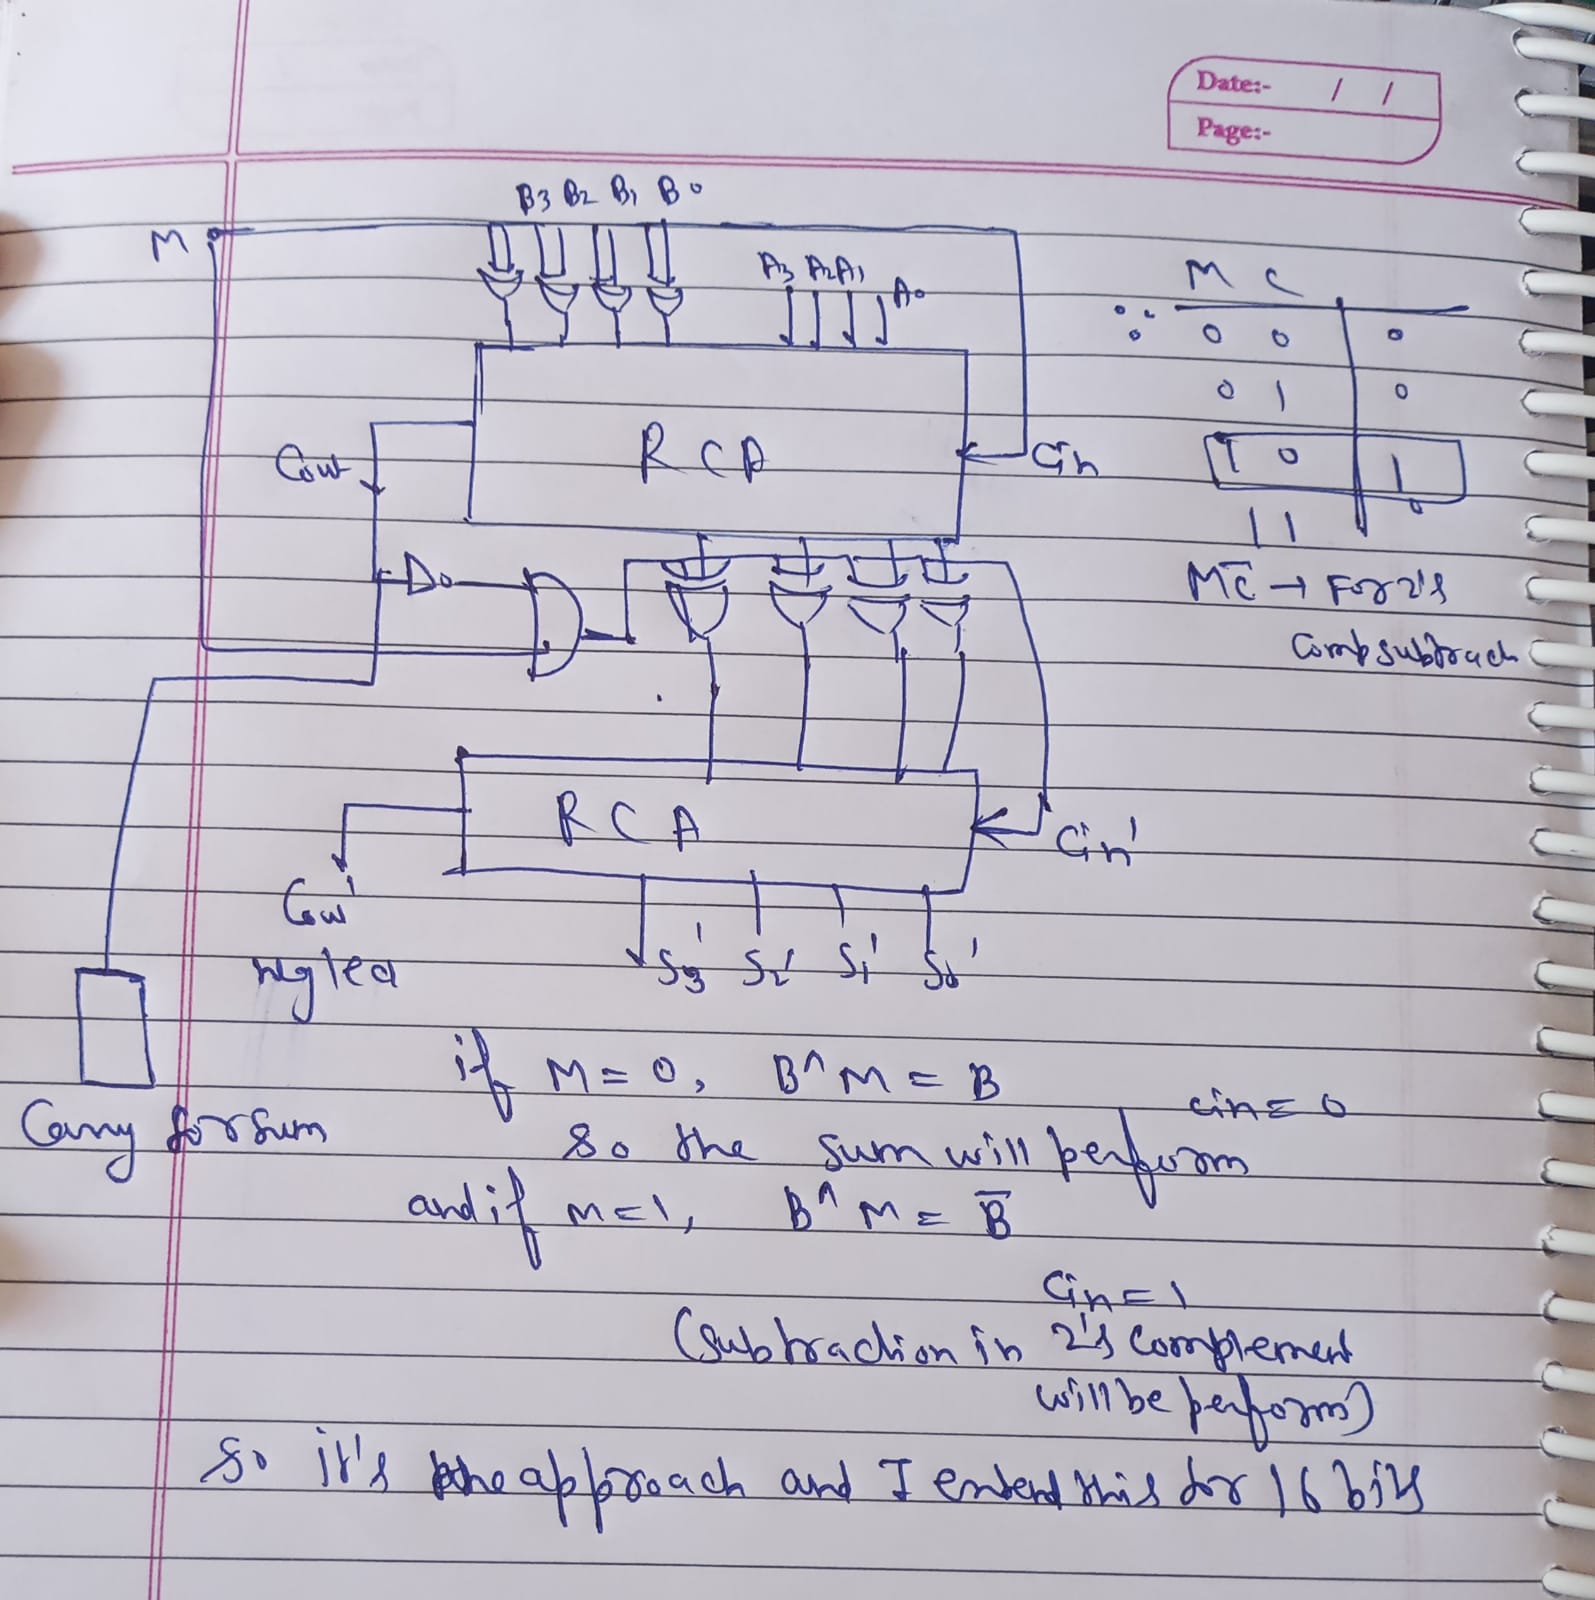 Date:- / /
Page:-
B3 B2 B1 B0
M
A3 A2 A1 A0
M C
0 0 0
0 1 0
1 0 1
1 1 0
RCA
Cout
Cin
MC̅ → For 2's
Comp subtrach
RCA
Cin'
Cout'
neglect
S3' S2' S1' S0'
Carry for sum
if M = 0, B^M = B
cin = 0
so the sum will perform
and if m = 1, B^M = B̅
Cin = 1
(subtraction in 2's complement
will be perform)
so it's the approach and I extend this for 16 bits